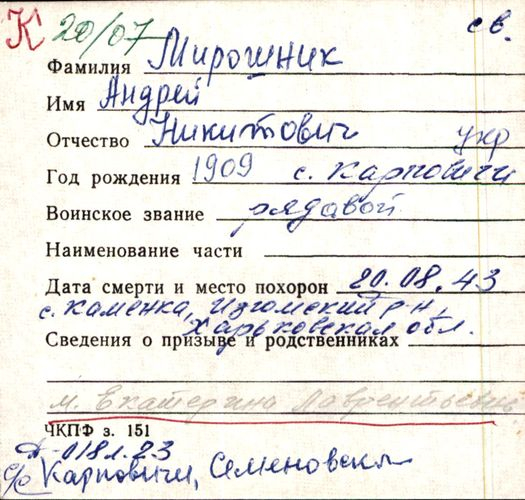 К 20/07 св.
Фамилия Мирошник
Имя Андрей
Отчество Никитович укр
Год рождения 1909 с. Карповичи
Воинское звание рядавой
Наименование части
Дата смерти и место похорон 20.08.43
с. Каменка, Изюмский р-н,
Харьковская обл.
Сведения о призыве и родственниках
м. Екатерина Лаврентьевна
ЧКПФ з. 151
Д-018л.23
с/с Карповичи, Семеновск